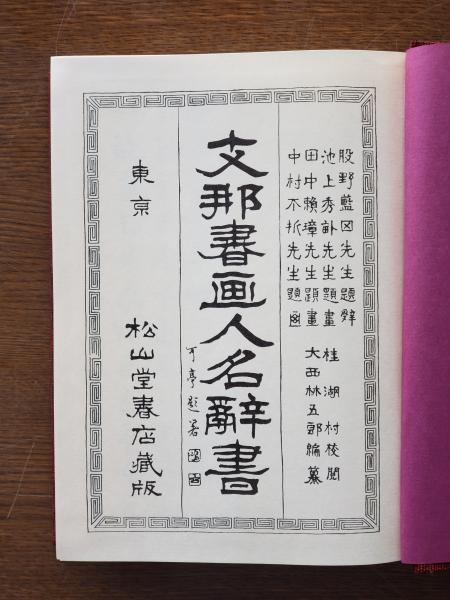 股野藍田先生題辭
池上秀畝先生題畫
田中頼璋先生題畫
中村不折先生題画
桂湖村校閲
大西林五郎編纂
支那書画人名辭書
可亭題署
東京
松山堂書店藏版